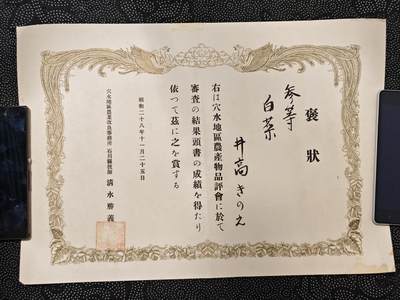 褒狀
参等
白菜
井高きのえ
右は穴水地區農產物品評會に於て
審査の結果頭書の成績を得たり
依つて茲に之を賞する
昭和二十八年十一月二十五日
穴水地區農業改良事務所 石川縣技師 清水勝義